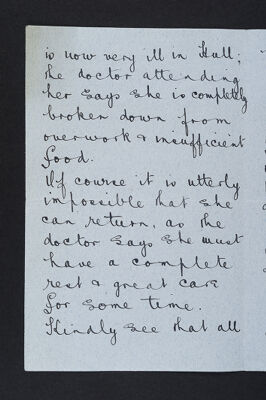 is now very ill in Hull;
the doctor attending
her says she is completely
broken down from
overwork & insufficient
food.
Of course it is utterly
impossible that she
can return, as the
doctor says she must
have a complete
rest & great care
for some time.
Kindly see that all